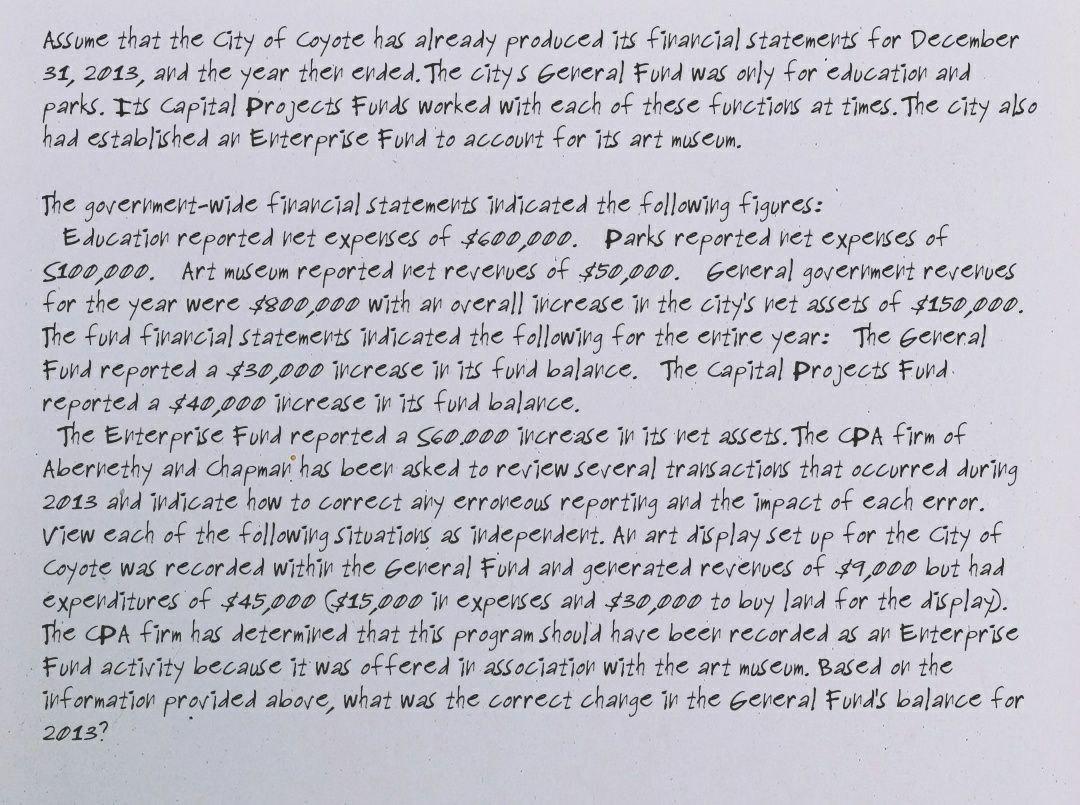 Assume that the City of Coyote has already produced its financial statements for December
31, 2013, and the year then ended. The city s General Fund was only for education and
parks. Its Capital Projects Funds worked with each of these functions at times. The city also
had established an Enterprise Fund to account for its art museum.
The government-wide financial statements indicated the following figures:
Education reported net expenses of $600,000. Parks reported net expenses of
$100,000. Art museum reported net revenues of $50,000. General government revenues
for the year were $800,000 with an overall increase in the city's net assets of $150,000.
The fund financial statements indicated the following for the entire year: The General
Fund reported a $30,000 increase in its fund balance. The Capital Projects Fund
reported a $40,000 increase in its fund balance.
The Enterprise Fund reported a $60.000 increase in its net assets. The CPA firm of
Abernethy and Chapman has been asked to review several transactions that occurred during
2013 and indicate how to correct any erroneous reporting and the impact of each error.
View each of the following situations as independent. An art display set up for the City of
Coyote was recorded within the General Fund and generated revenues of $9,000 but had
expenditures of $45,000 ($15,000 in expenses and $30,000 to buy land for the display).
The CPA firm has determined that this program should have been recorded as an Enterprise
Fund activity because it was offered in association with the art museum. Based on the
information provided above, what was the correct change in the General Fund's balance for
2013?